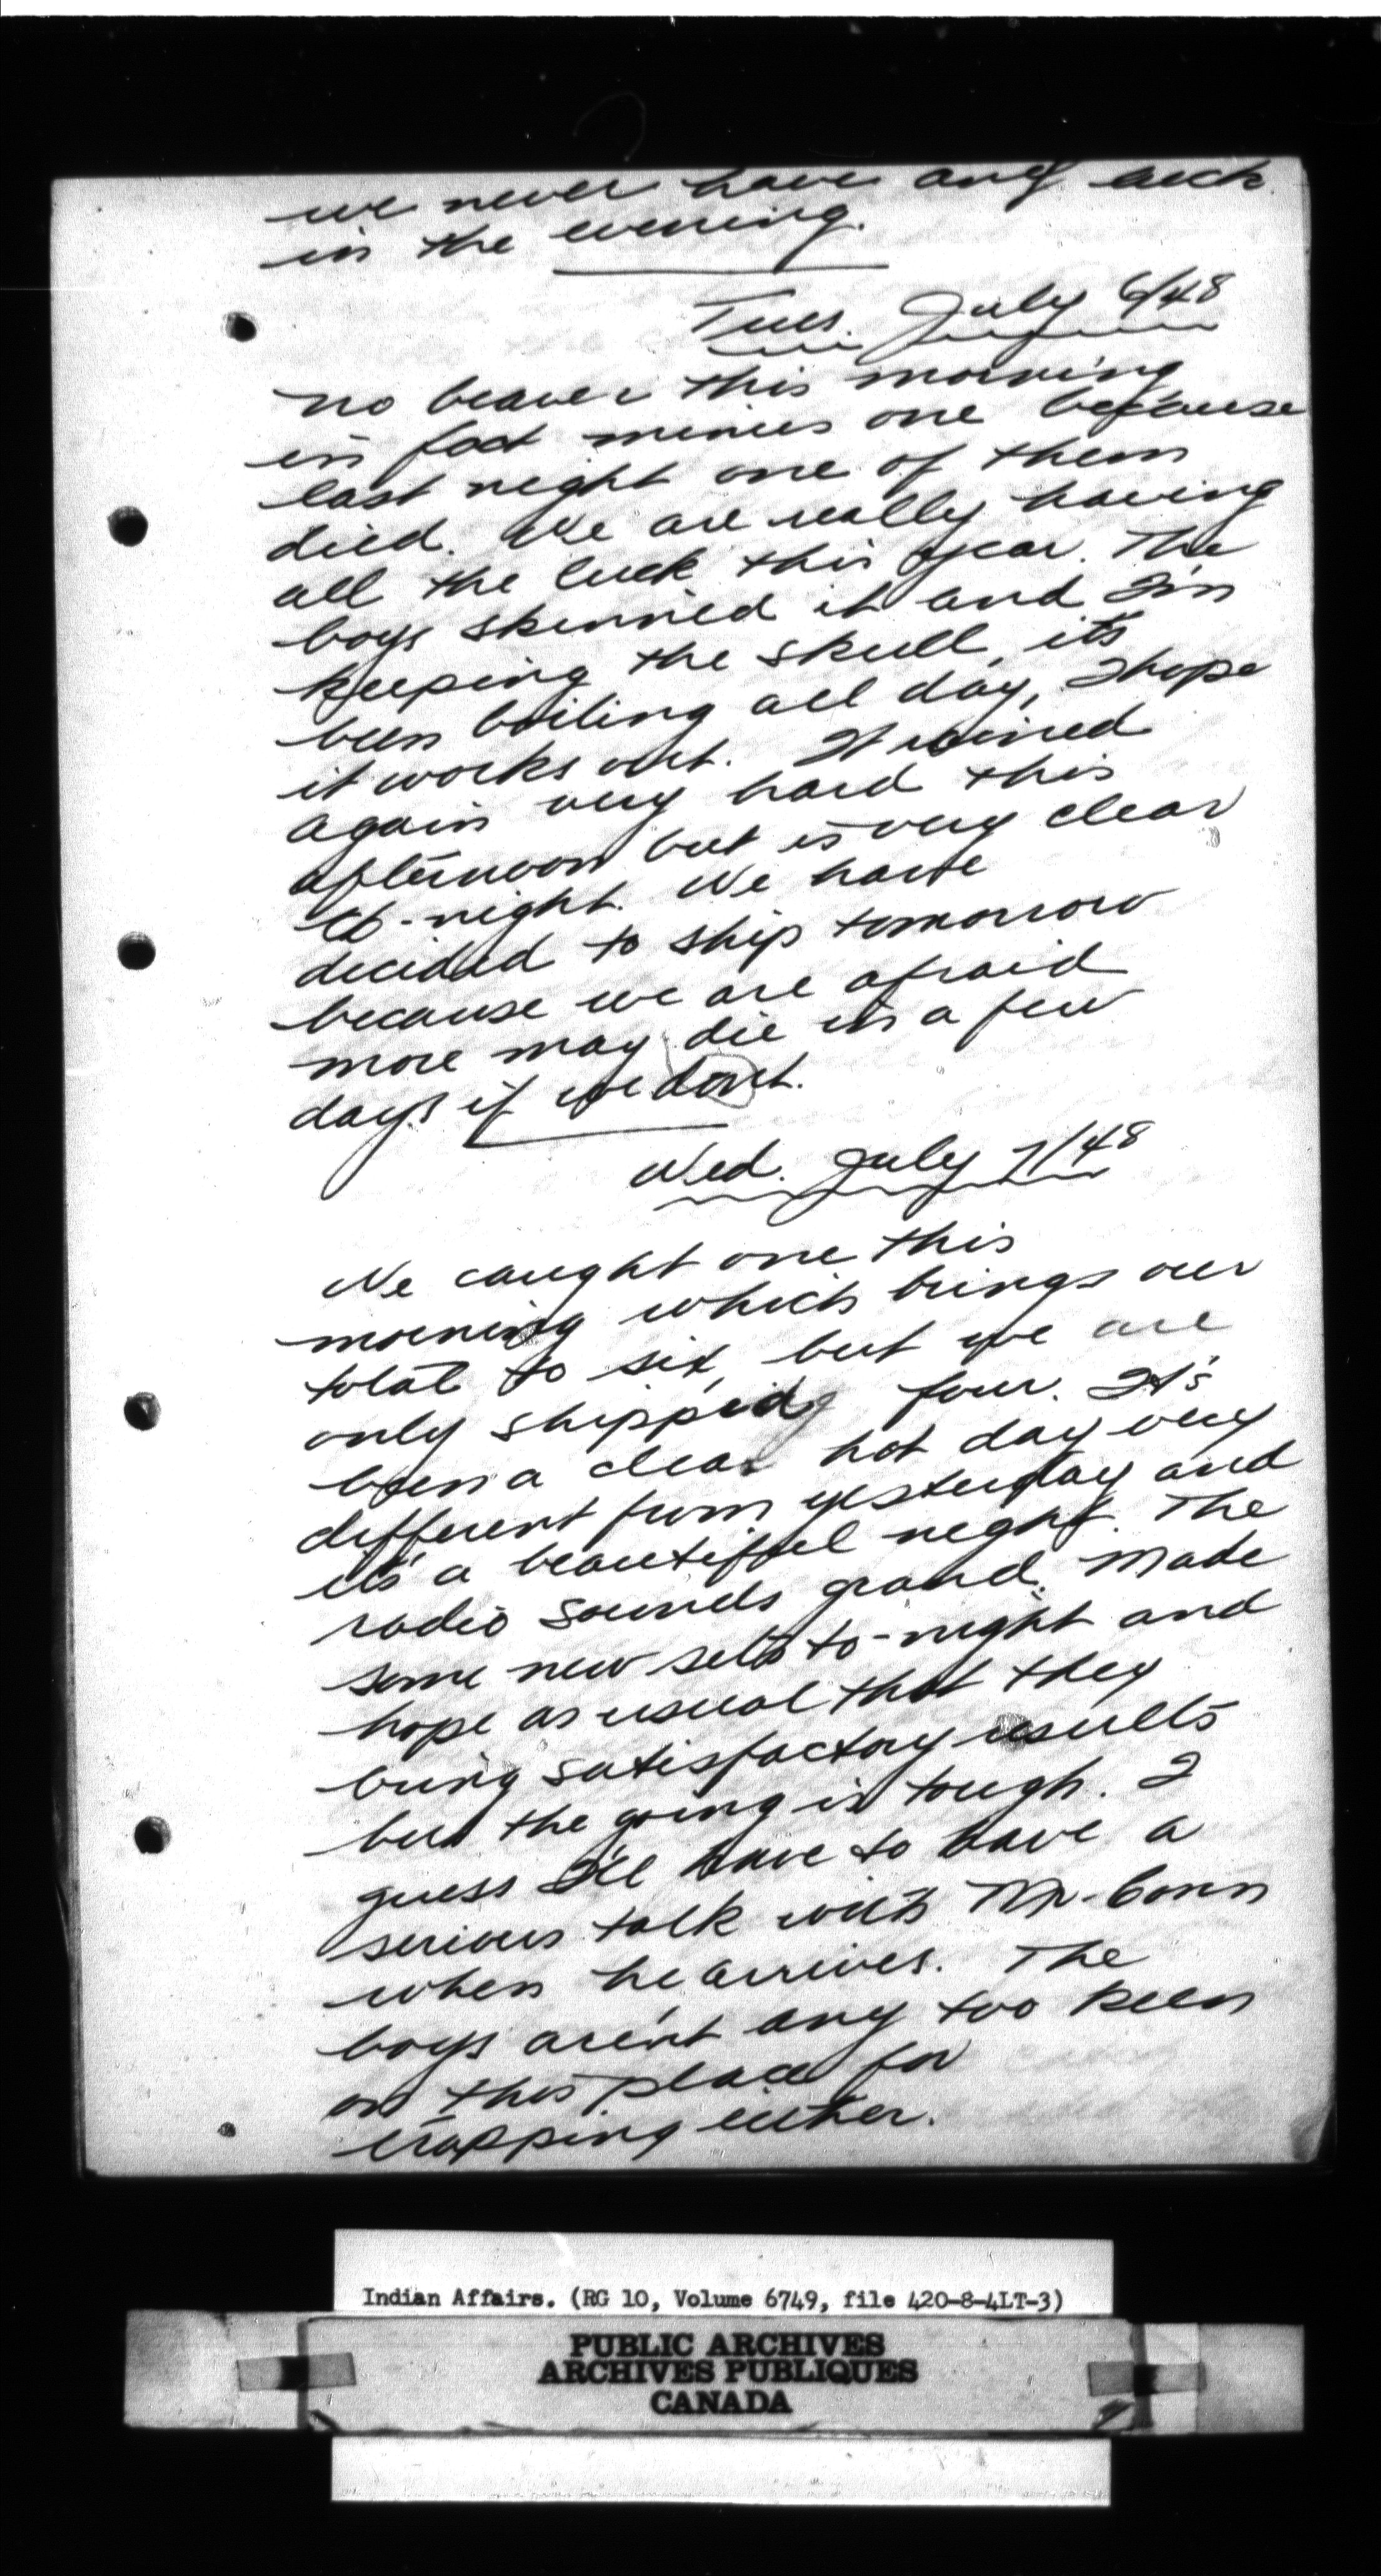 we never have any luck
in the evening.
Tues. July 6/48
No beaver this morning
in fact minus one because
last night one of them
died. We are really having
all the luck this year. The
boys skinned it and I'm
keeping the skull, it's
been boiling all day, I hope
it works out. It rained
again very hard this
afternoon but is very clear
to-night. We have
decided to ship tomorrow
because we are afraid
more may die in a few
days if we don't.
Wed. July 7/48
We caught one this
morning which brings our
total to six, but we are
only shipping four. It's
been a clear hot day very
different from yesterday and
it's a beautiful night. The
radio sounds grand. Made
some new sets to-night and
hope as usual that they
bring satisfactory results
but the going is tough. I
guess I'll have to have a
serious talk with Mr. Conn
when he arrives. The
boys aren't any too keen
on this place for
trapping either.
Indian Affairs. (RG 10, Volume 6749, file 420-8-4LT-3)
PUBLIC ARCHIVES
ARCHIVES PUBLIQUES
CANADA